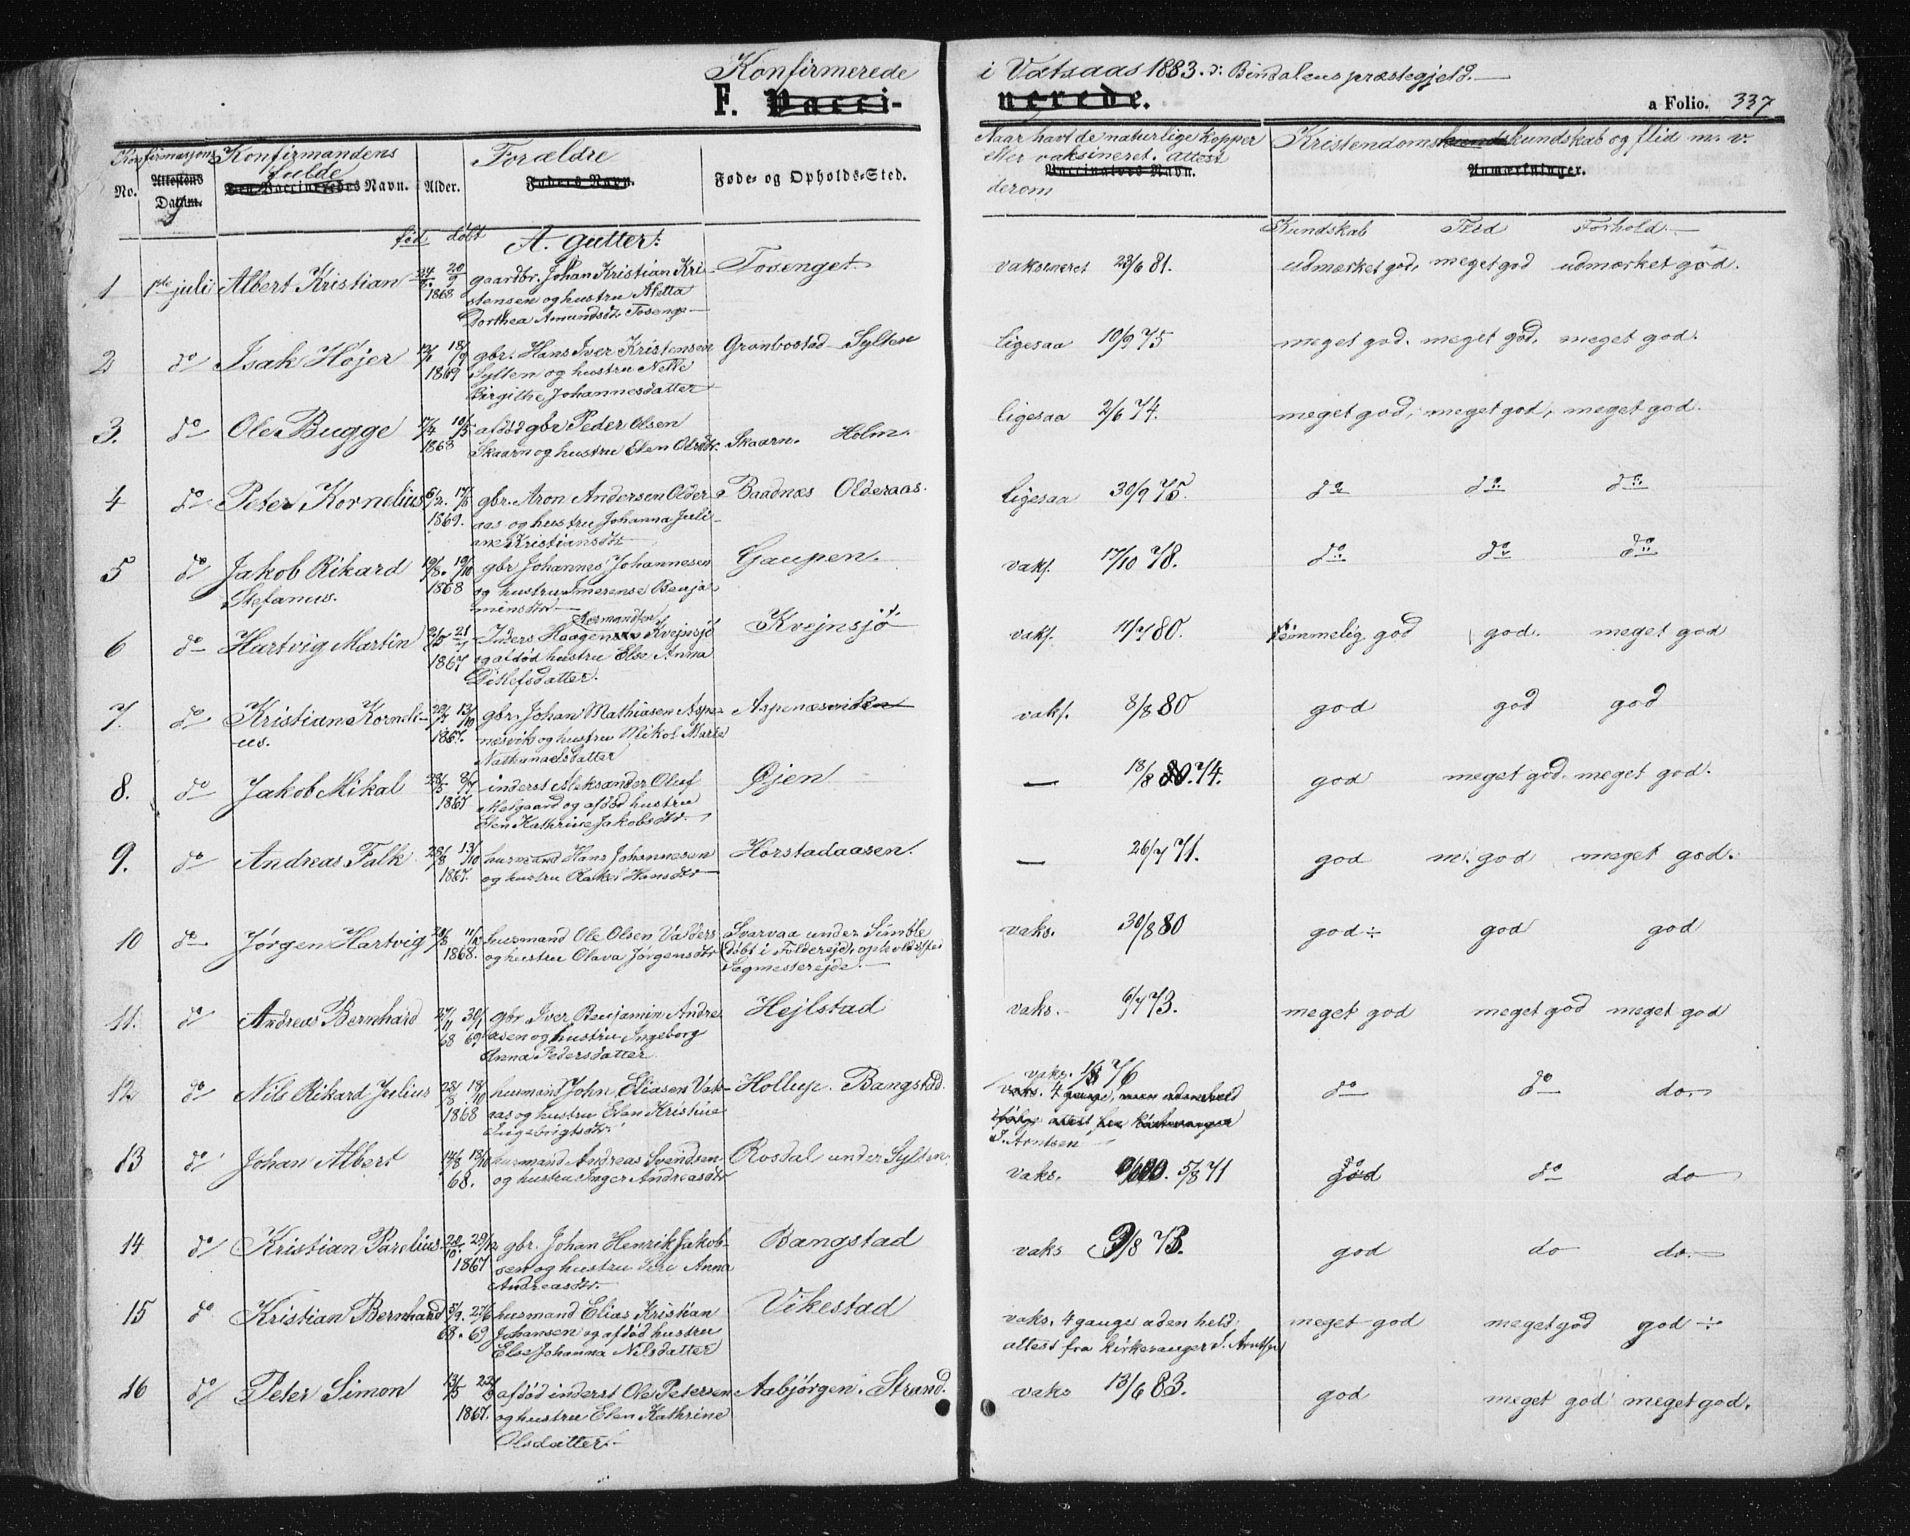 Konfirmerede i Vatsaas 1883. Bindalens præstegjeld.
F. Vaccinerede.
a Folio. 337
No.
Konfirmasjons
Attestens
Datum.
Konfirmandens
fulde
Den Vaccineredes Navn.
Alder.
Forældre
Faders Navn.
Føde- og Opholds-Sted.
Naar havt de naturlige kopper
eller vaksineret. attest
Vaccinators Navn.
derom
Kristendomskundskab og flid m. v.
Anmærkninger.
fød døbt A. gutter:
Kundskab Flid Forhold.
1 1ste juli Albert Kristian 20/9 1868 gaardbr. Johan Kristian Kri- Tosenget. vaksineret 23/6 81. udmærket god, meget god udmærket god.
stensen og hustru Aletta
Dorthea Amundsdtr Tosenge
2 do Isak Højer 18/9 1869 gbr. Hans Iver Kristensen Grønbostad Sylten ligesaa 10/9 75 meget god. meget god, meget god.
Sylten og hustru Nette
Birgithe Johannesdatter
3. do Ole Bugge 17/4 10/5 1868 afdød gbr Peder Olsen
Skaarn og hustru Elen Olsdtr. Skaarn. Holm. ligesaa 2/6 74. meget god, meget god, meget god.
4 do Peter Kornelius 6/2 17/5 1869. gbr. Aron Andersen Older- Baadnæs Olderaas. ligesaa 30/9 75. do do do
aas og hustru Johanna Juli-
ane Kristiansdtr
5 do Jakob Rikard 19/8. 19/10 1868 gbr Johannes Johannesen Gaupen. vaks. 17/10 78. do do do
Stefanus. og hustru Imerense Benja
minsdtr
6 do Hartvig Martin 21/5 1867 Inders Haagensen Kvejnsjø Kvejnsjø vaks. 11/7 80. temmelig god god. meget god
og afdød hustru Else Anna
Ditlefsdatter.
7. do Kristian Korneli- 13/10 1867. gbr. Johan Mathiasen Aspe- Aspenæsviken vaks. 8/8 80 god god god
us. nesvik og hustru Nikol. Marie
Nathanaelsdatter
8. do Jakob Mikal 28/5 8/7 1867 inderst Aleksander Oluf Øjen — 18/8 80. 74. god meget god. meget god.
Melgaard og afdød hustru
Elen Kathrine Jakobsdtr.
9. do Andreas Falk 28/8 13/10 1867. husmand Hans Johannesen Horstadaasen. — 26/7 71. god m. god meget god.
og hustru Rakel Hansdtr
10 do Jørgen Hartvig 1868. husmand Ole Olsen Valders Svarvaa under Simle vaks. 30/8 80 god ÷ god god
og hustru Olava Jørgensdtr (døbt i Folderejd, opholdssted
Sagmesterejde.
11. do Andreas Bernhard 27/11 68 30/1 69 gbr Iver Benjamin Andre Hejlstad vaks. 6/7 73. meget god meget god meget god
asen og hustru Ingeborg
Anna Pedersdatter.
12 do Nils Rikard Julius 18/10 1868 husmand John Eliasen Vats- Hollup. Bangstad. vaks. 76 do do do.
aas og hustru Elen Kristina vaks. 4 gange, men udenheld
Ingebrigtsdtr. ifølge attest fra kirkesanger
S. Arntsen
13 do Johan Albert 14/8 18/10 68. husmand Andreas Svendsen Rosdal under Sylten. vaks. 5/8 71 do do do
og hustru Inger Andreasdtr
14 do Kristian Parelius 20/10. 29/12 1867 gbr. Johan Henrik Jakob- Bangstad vaks 9/8 73. god do do.
sen og hustru Seri Anna
Andreasdtr.
15 do Kristian Bernhard 5/9. 68. 27/6 69 husmand Elias Kristian Vikestad vaks. 4 gange uden held. meget god meget god god ÷
Johansen og afdød hustru attest fra kirkesanger S. Arntsen
Else Johanna Nilsdatter
16 do Peter Simon 13/5 1867. afdød inderst Ole Petersen Aabjørgen. Strand. vaks 13/6 83. god meget god meget god.
og hustru Elen Kathrine
Olsdatter